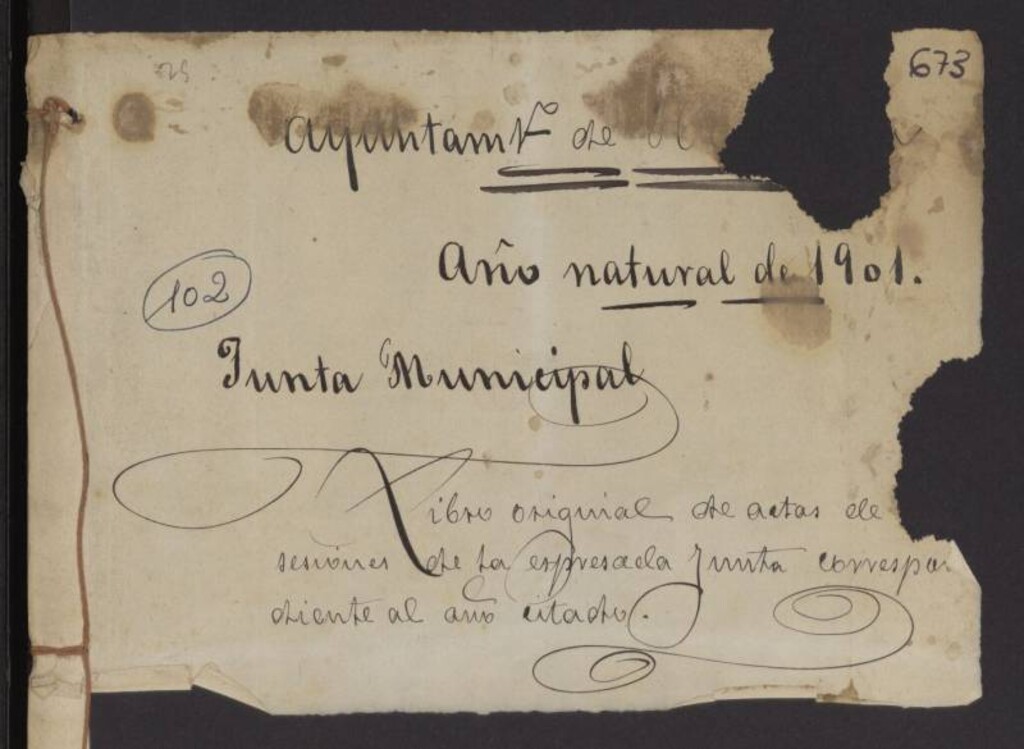 673
Ayuntamto de
Año natural de 1901.
102
Junta Municipal
Libro original de actas de
sesiones de la expresada Junta correspon
diente al año citado.